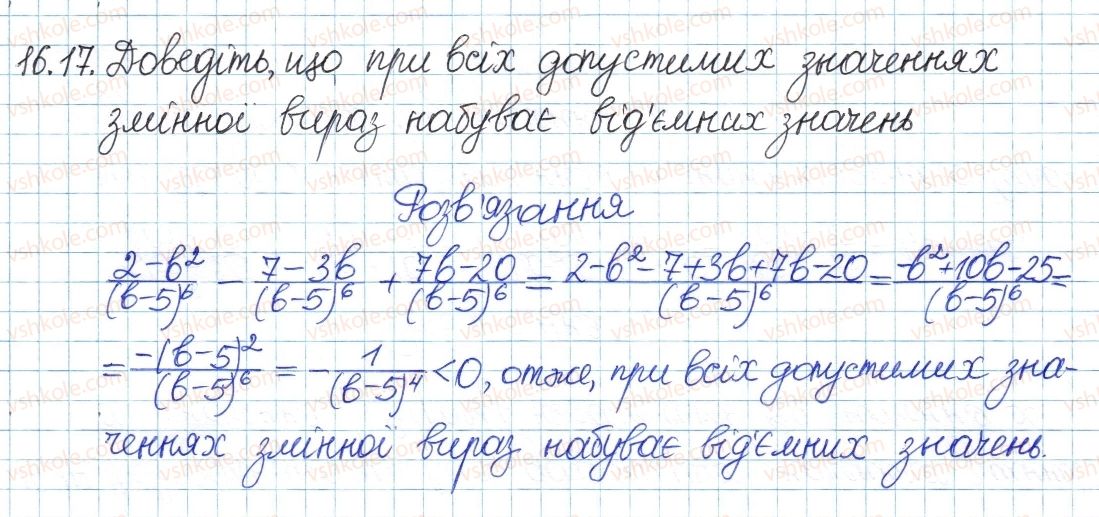 16.17. Доведіть, що при всіх допустимих значеннях
змінної вираз набуває від'ємних значень
Розв'язання
(2-в²)/(в-5)⁶ - (7-3в)/(в-5)⁶ + (7в-20)/(в-5)⁶ = (2-в²-7+3в+7в-20)/(в-5)⁶ = (-в²+10в-25)/(в-5)⁶ =
= (-(в-5)²)/(в-5)⁶ = - 1/(в-5)⁴ < 0, отже, при всіх допустимих зна-
ченнях змінної вираз набуває від'ємних значень.
vshkole.com